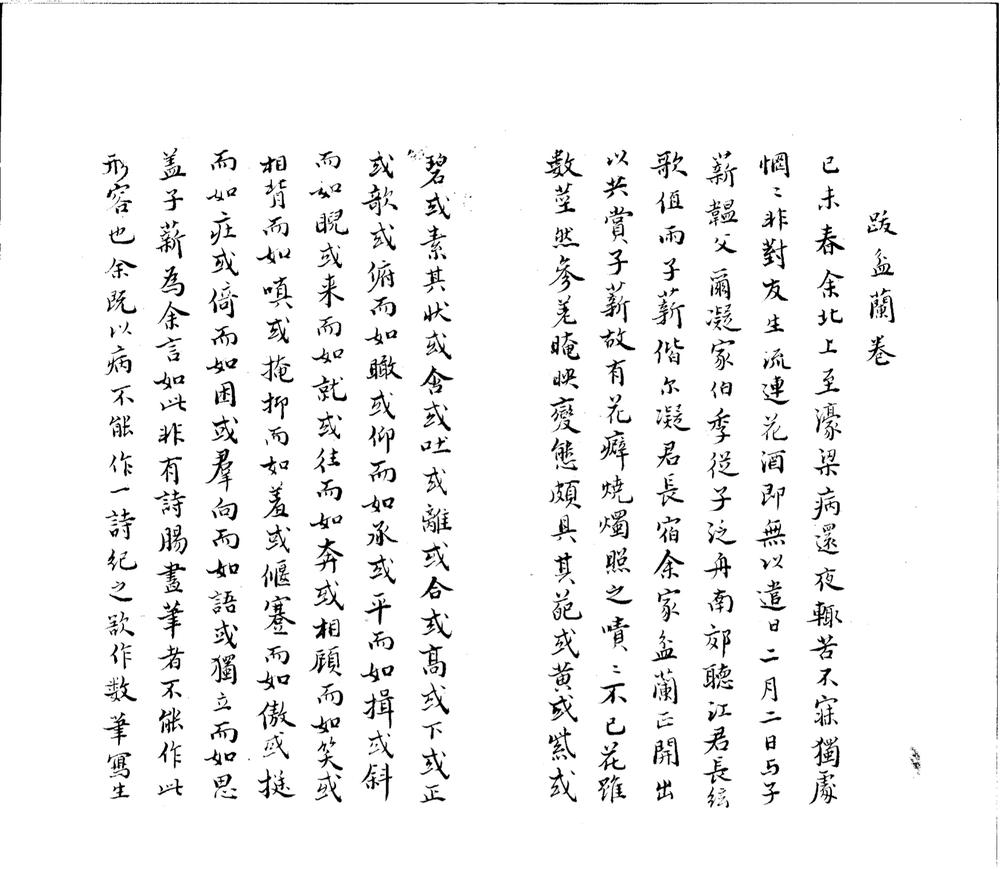 跋盆蘭卷
己未春余北上至濠梁病還夜輒苦不寐獨處
惘〻非對友生流連花酒即無以遣日二月二日与子
薪韞父爾凝家伯季從子泛舟南郊聽江君長絃
歌值雨子薪偕尔凝君長宿余家盆蘭正開出
以共賞子薪故有花癖燒燭照之嘖〻不已花雖
數莖然參差晻映變態頗具其葩或黄或紫或
碧或素其狀或含或吐或離或合或高或下或正
或欹或俯而如瞰或仰而如承或平而如揖或斜
而如睨或来而如就或往而如奔或相顧而如笑或
相背而如嗔或掩抑而如羞或偃蹇而如傲或挺
而如莊或倚而如困或羣向而如語或獨立而如思
盖子薪為余言如此非有詩腸畫筆者不能作此
形容也余既以病不能作一詩紀之欲作数筆寫生